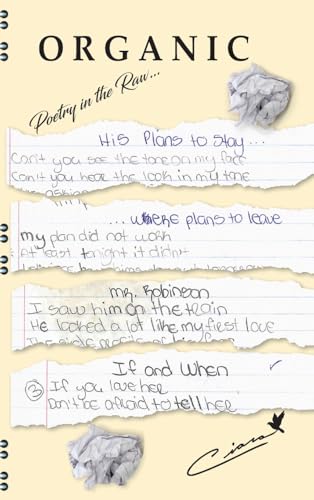 ORGANIC
Poetry in the Raw...
His Plans to Stay...
Can't you see the tone on my face
Can't you hear the look in my tone
...where plans to leave
my plan did not work
At least tonight it didn't
mr. Robinson
I saw him on the train
He looked a lot like my first love
The side profile of his face
If and When
3 If you love her
Don't be afraid to tell her